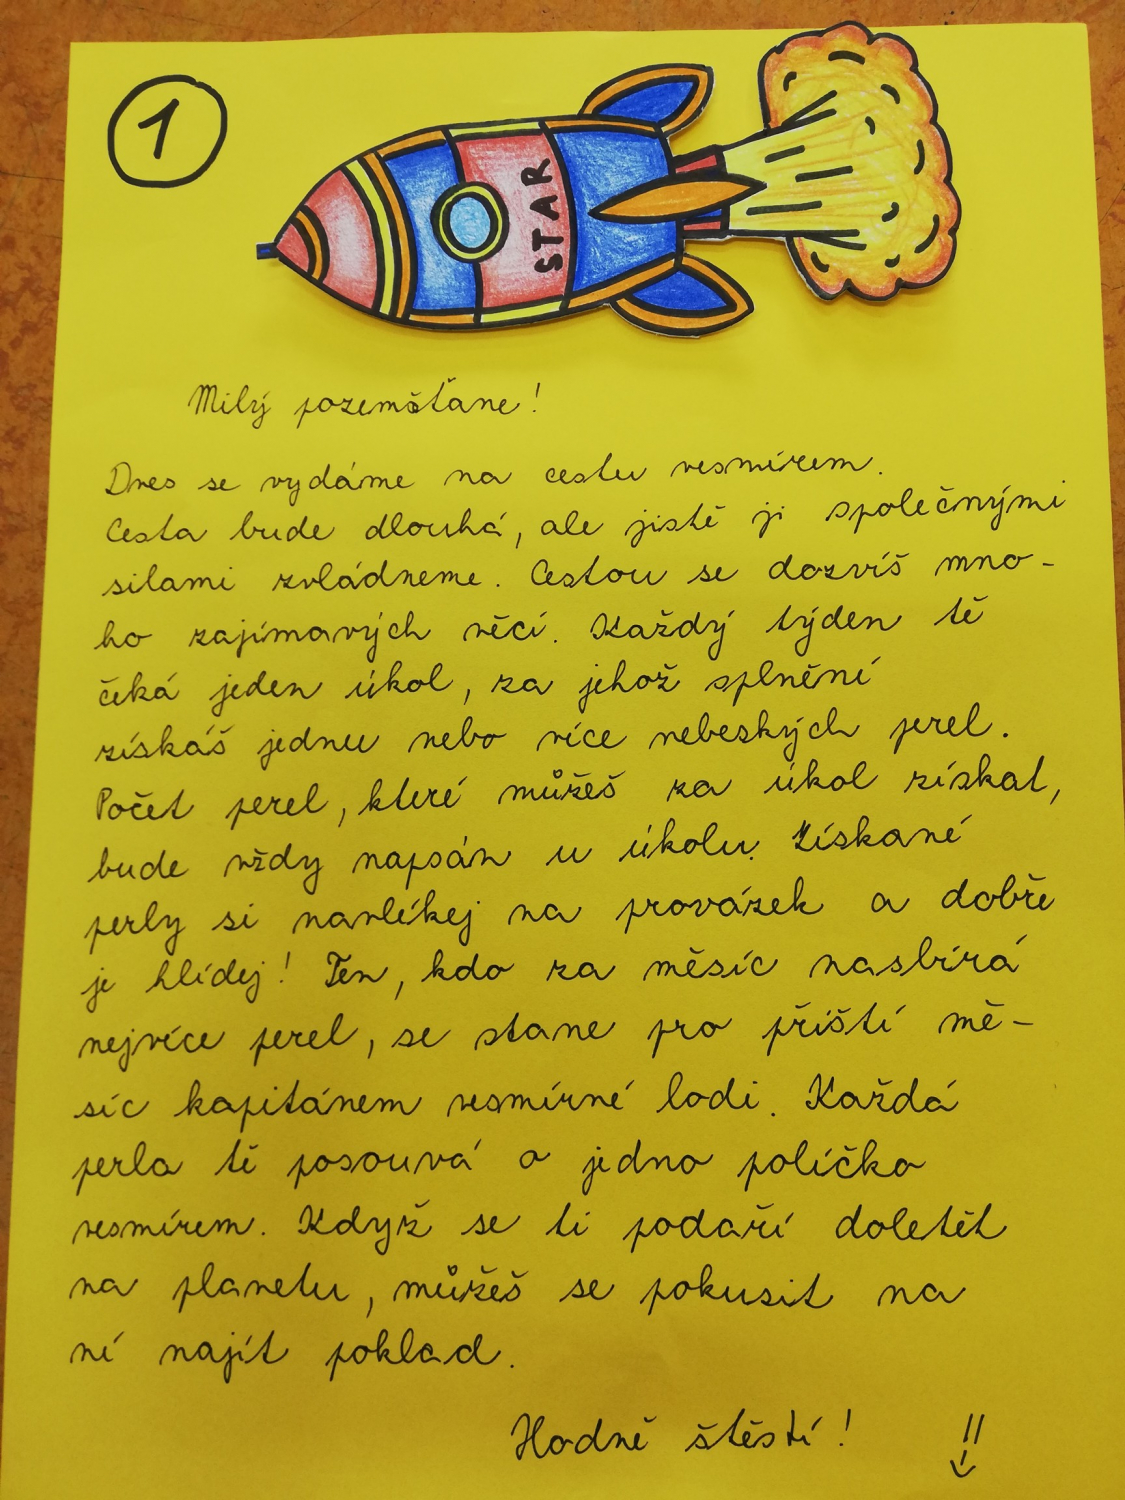 1
STAR
Milý pozemšťane!
Dnes se vydáme na cestu vesmírem.
Cesta bude dlouhá, ale jistě ji společnými
silami zvládneme. Cestou se dozvíš mno-
ho zajímavých věcí. Každý týden tě
čeká jeden úkol, za jehož splnění
získáš jednu nebo více nebeských perel.
Počet perel, které můžeš za úkol získat,
bude vždy napsán u úkolu. Získané
perly si navlékej na provázek a dobře
je hlídej! Ten, kdo za měsíc nasbírá
nejvíce perel, se stane pro příští mě-
síc kapitánem vesmírné lodi. Každá
perla tě posouvá o jedno políčko
vesmírem. Když se ti podaří doletět
na planetu, můžeš se pokusit na
ní najít poklad.
Hodně štěstí! !!
↓